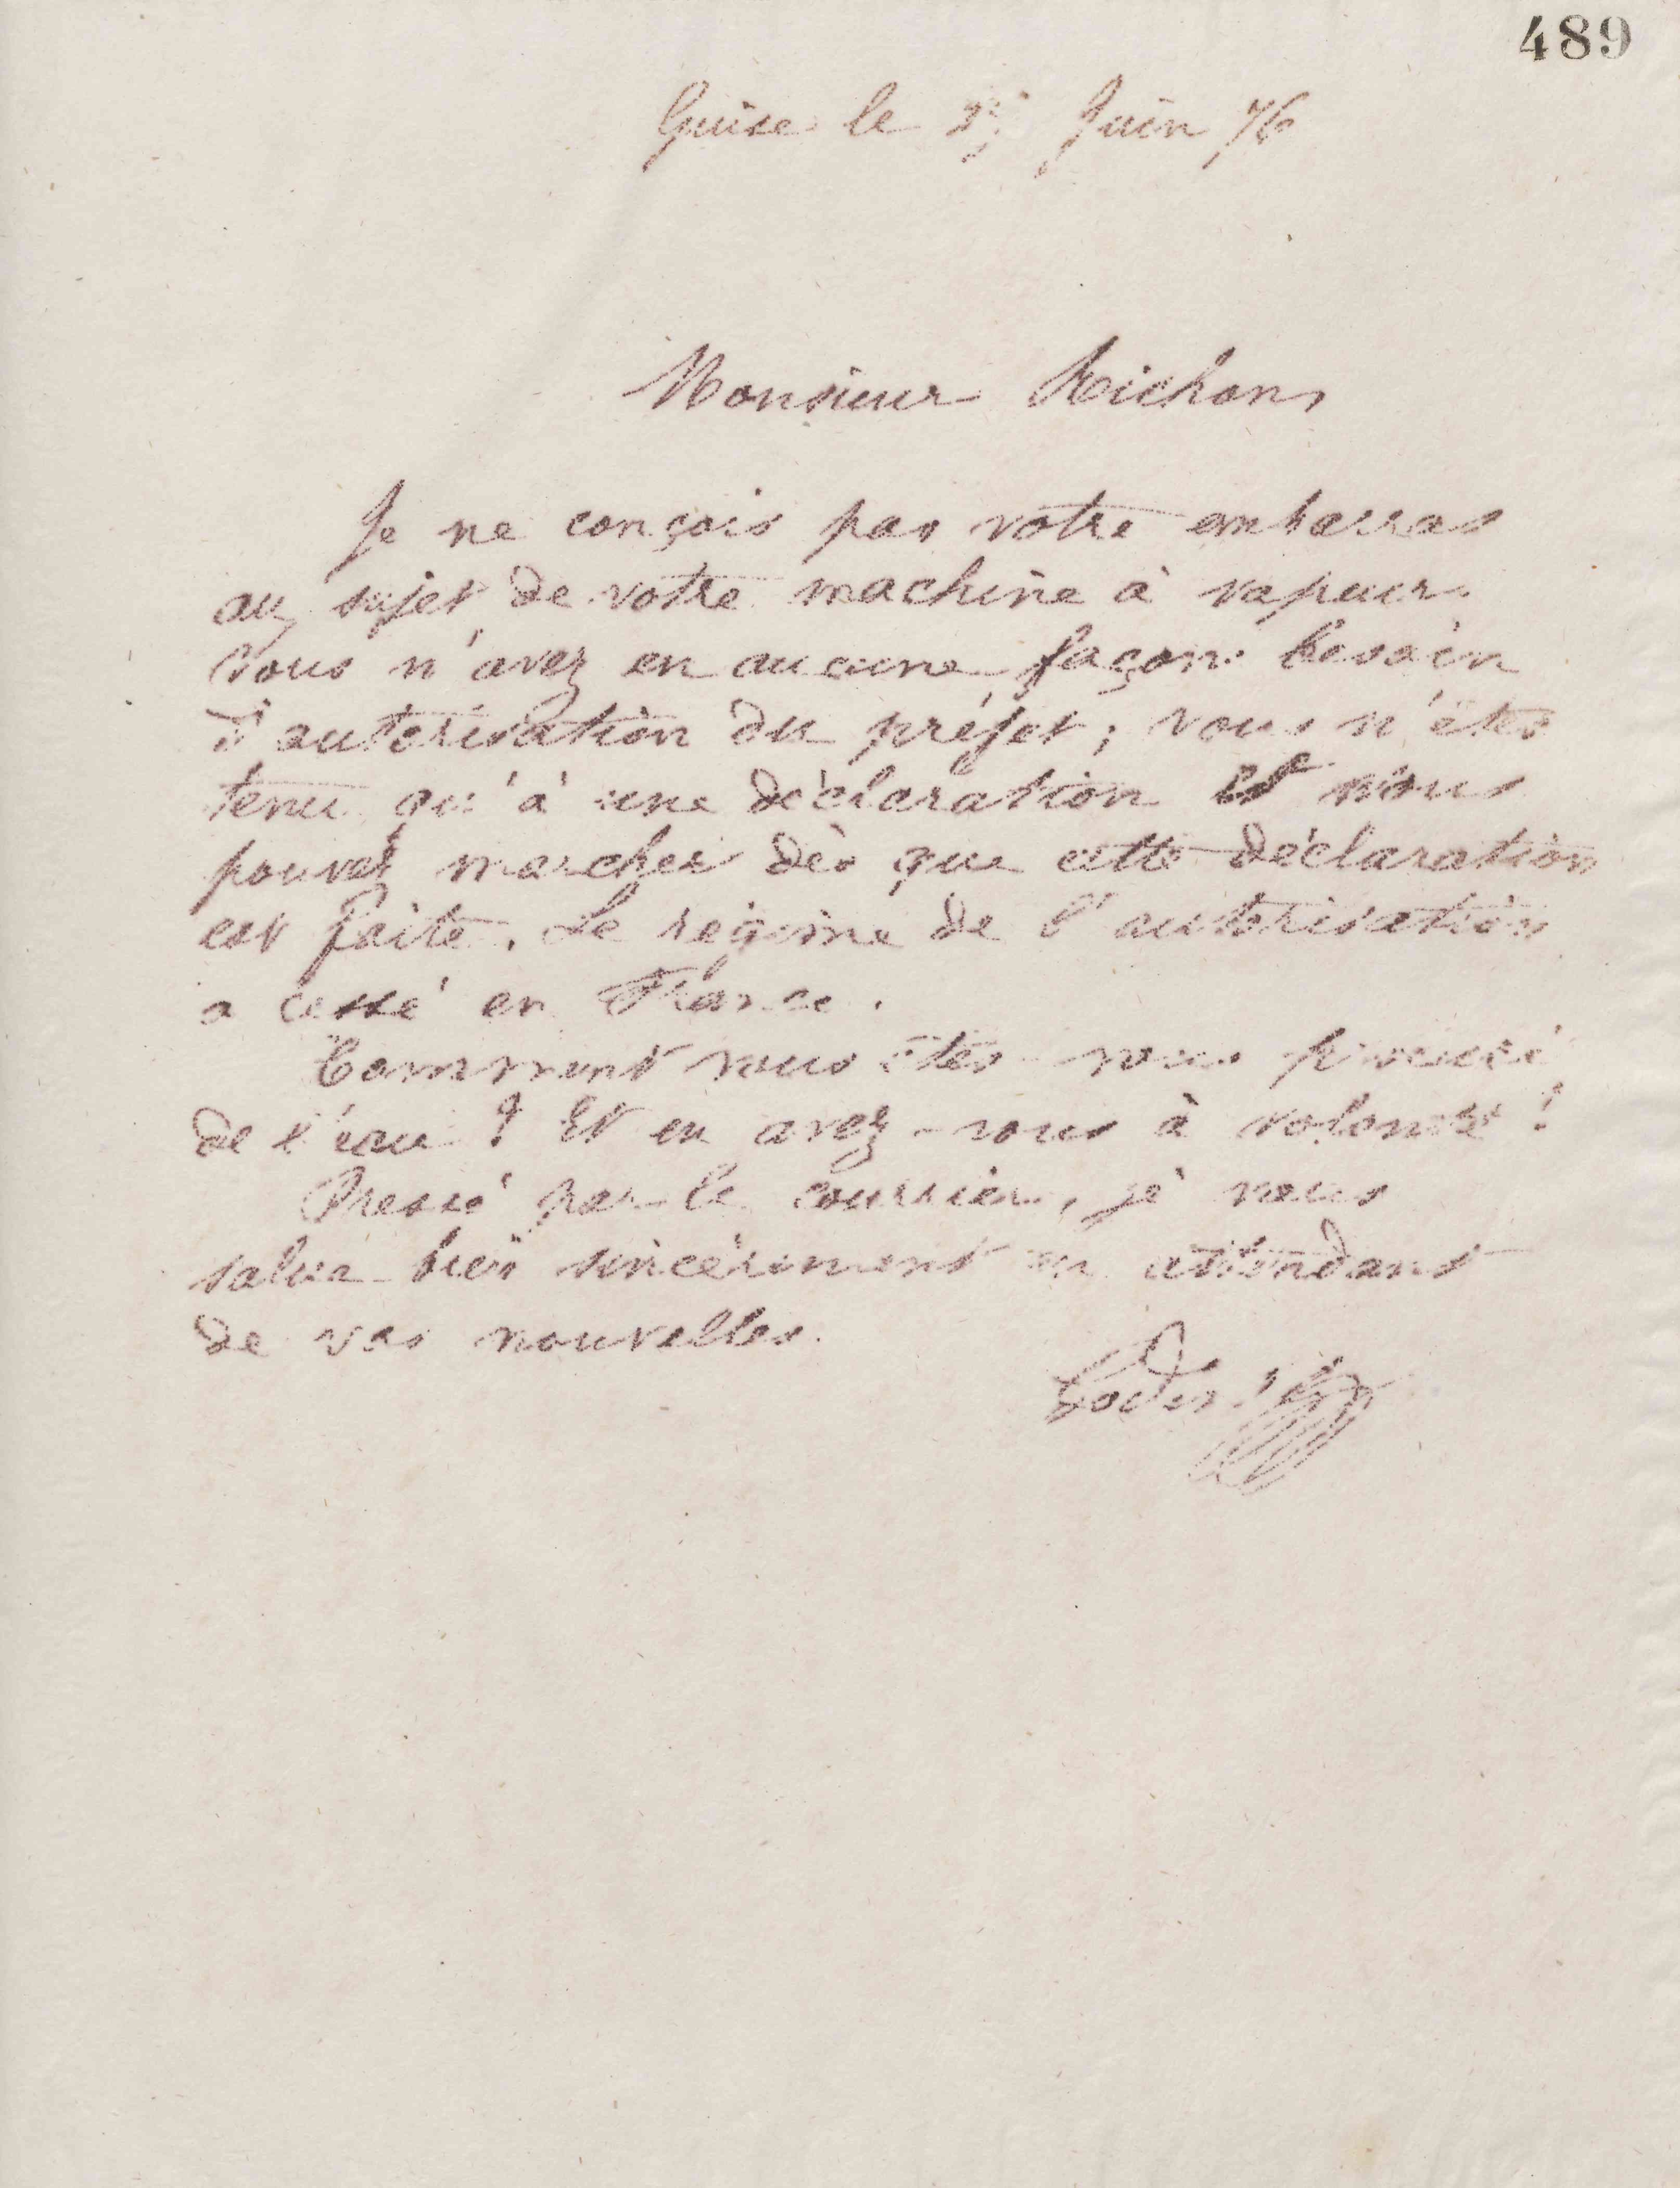 489
Guise le Juin 76
Monsieur Richon,
Je ne conçois pas votre embarras
au sujet de votre machine à vapeur.
Vous n'avez en aucune façon besoin
d'autorisation du préfet ; vous n'êtes
tenu qu'à une déclaration et vous
pouvez marcher dès que cette déclaration
est faite. Le régime de l'autorisation
a cessé en France.
Comment vous êtes-vous procuré
de l'eau ? Et en avez-vous à volonté ?
Pressé par le courrier, je vous
salue bien sincèrement en attendant
de vos nouvelles.
Godin